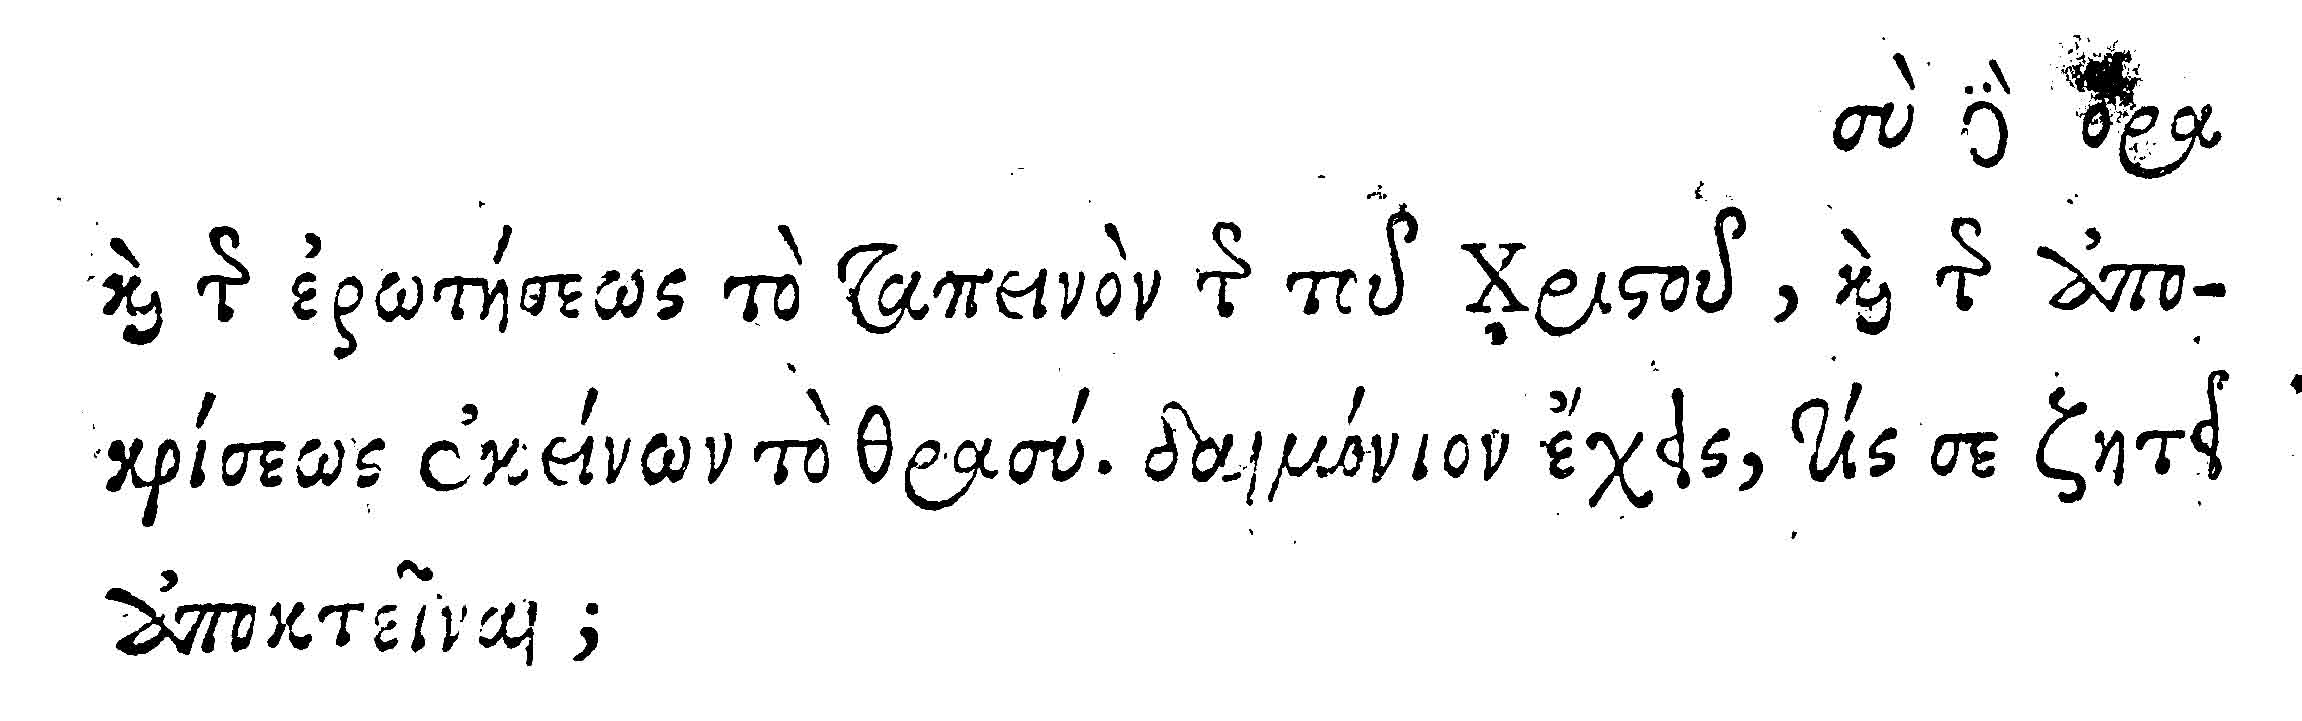 σὺ δὲ ὅρα
καὶ τῆς ἐρωτήσεως τὸ ταπεινὸν τῆς τοῦ Χριστοῦ, καὶ τῆς ἀπο-
κρίσεως ἐκείνων τὸ θρασύ. δαιμόνιον ἔχεις, τίς σε ζητεῖ
ἀποκτεῖναι;